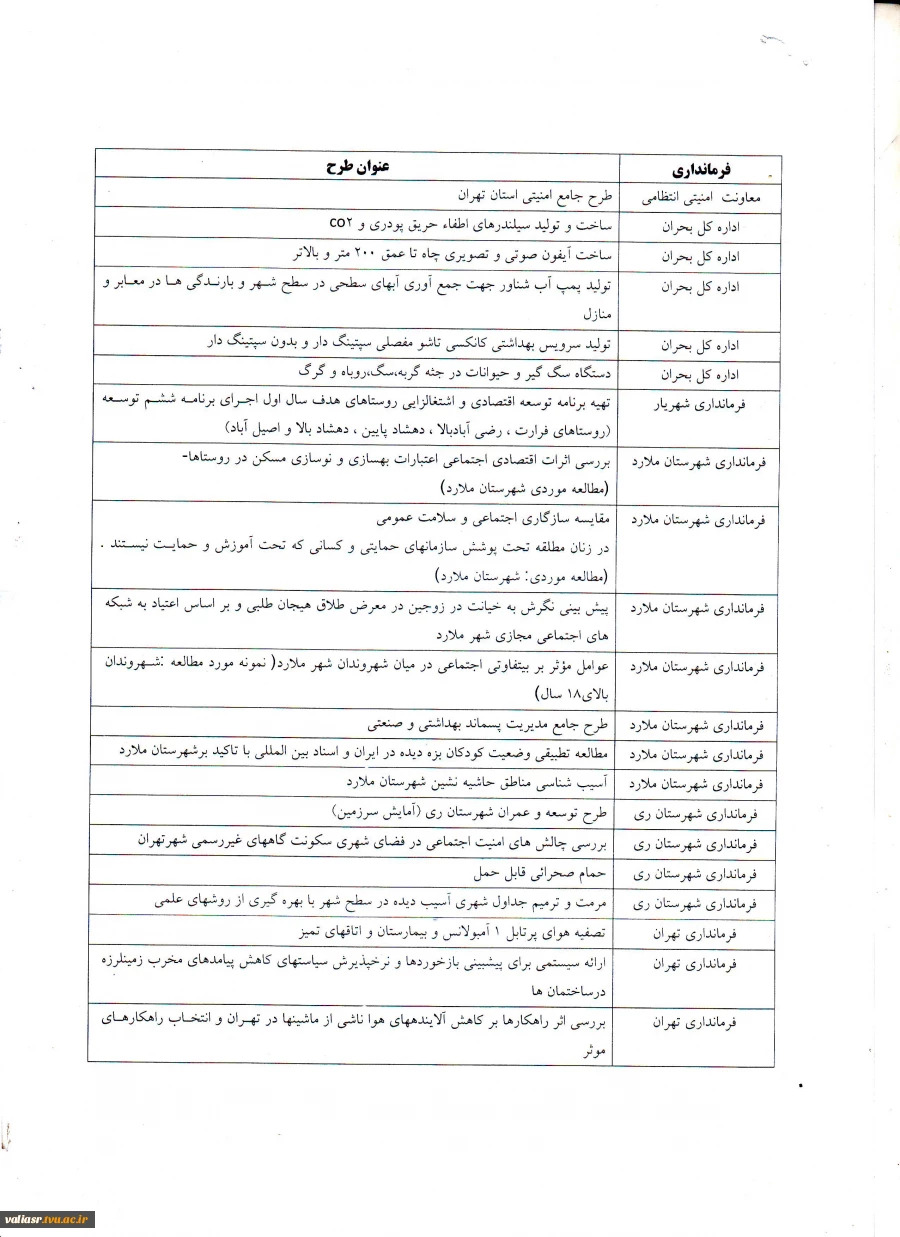 فرمانداری عنوان طرح
معاونت امنیتی انتظامی طرح جامع امنیتی استان تهران
اداره کل بحران ساخت و تولید سیلندرهای اطفاء حریق پودری و co۲
اداره کل بحران ساخت آیفون صوتی و تصویری چاه تا عمق ۲۰۰ متر و بالاتر
اداره کل بحران تولید پمپ آب شناور جهت جمع آوری آبهای سطحی در سطح شهر و بارندگی ها در معابر و
منازل
اداره کل بحران تولید سرویس بهداشتی کانکسی تاشو مفصلی سپتینگ دار و بدون سپتینگ دار
اداره کل بحران دستگاه سگ گیر و حیوانات در جثه گربه،سگ،روباه و گرگ
فرمانداری شهریار تهیه برنامه توسعه اقتصادی و اشتغالزایی روستاهای هدف سال اول اجرای برنامه ششم توسعه
(روستاهای فرارت ، رضی آبادبالا ، دهشاد پایین ، دهشاد بالا و اصیل آباد)
فرمانداری شهرستان ملارد بررسی اثرات اقتصادی اجتماعی اعتبارات بهسازی و نوسازی مسکن در روستاها-
(مطالعه موردی شهرستان ملارد)
فرمانداری شهرستان ملارد مقایسه سازگاری اجتماعی و سلامت عمومی
در زنان مطلقه تحت پوشش سازمانهای حمایتی و کسانی که تحت آموزش و حمایت نیستند .
(مطالعه موردی: شهرستان ملارد)
فرمانداری شهرستان ملارد پیش بینی نگرش به خیانت در زوجین در معرض طلاق هیجان طلبی و بر اساس اعتیاد به شبکه
های اجتماعی مجازی شهر ملارد
فرمانداری شهرستان ملارد عوامل مؤثر بر بیتفاوتی اجتماعی در میان شهروندان شهر ملارد( نمونه مورد مطالعه :شهروندان
بالای۱۸ سال)
فرمانداری شهرستان ملارد طرح جامع مدیریت پسماند بهداشتی و صنعتی
فرمانداری شهرستان ملارد مطالعه تطبیقی وضعیت کودکان بزه دیده در ایران و اسناد بین المللی با تاکید برشهرستان ملارد
فرمانداری شهرستان ملارد آسیب شناسی مناطق حاشیه نشین شهرستان ملارد
فرمانداری شهرستان ری طرح توسعه و عمران شهرستان ری (آمایش سرزمین)
فرمانداری شهرستان ری بررسی چالش های امنیت اجتماعی در فضای شهری سکونت گاههای غیررسمی شهرتهران
فرمانداری شهرستان ری حمام صحرائی قابل حمل
فرمانداری شهرستان ری مرمت و ترمیم جداول شهری آسیب دیده در سطح شهر با بهره گیری از روشهای علمی
فرمانداری تهران تصفیه هوای پرتابل ۱ آمبولانس و بیمارستان و اتاقهای تمیز
فرمانداری تهران ارائه سیستمی برای پیشبینی بازخوردها و نرخپذیرش سیاستهای کاهش پیامدهای مخرب زمینلرزه
درساختمان ها
فرمانداری تهران بررسی اثر راهکارها بر کاهش آلایندههای هوا ناشی از ماشینها در تهران و انتخاب راهکارهای
موثر
valiasr.tvu.ac.ir